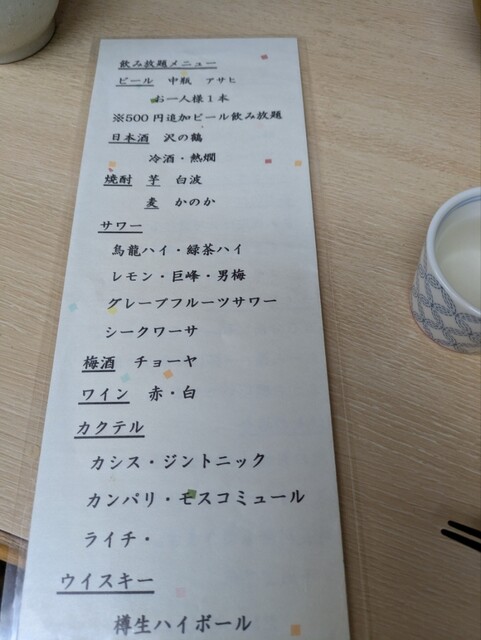 飲み放題メニュー
ビール 中瓶 アサヒ
お一人様1本
※500円追加ビール飲み放題
日本酒 沢の鶴
冷酒・熱燗
焼酎 芋 白波
麦 かのか
サワー
烏龍ハイ・緑茶ハイ
レモン・巨峰・男梅
グレープフルーツサワー
シークワーサ
梅酒 チョーヤ
ワイン 赤・白
カクテル
カシス・ジントニック
カンパリ・モスコミュール
ライチ・
ウイスキー
樽生ハイボール